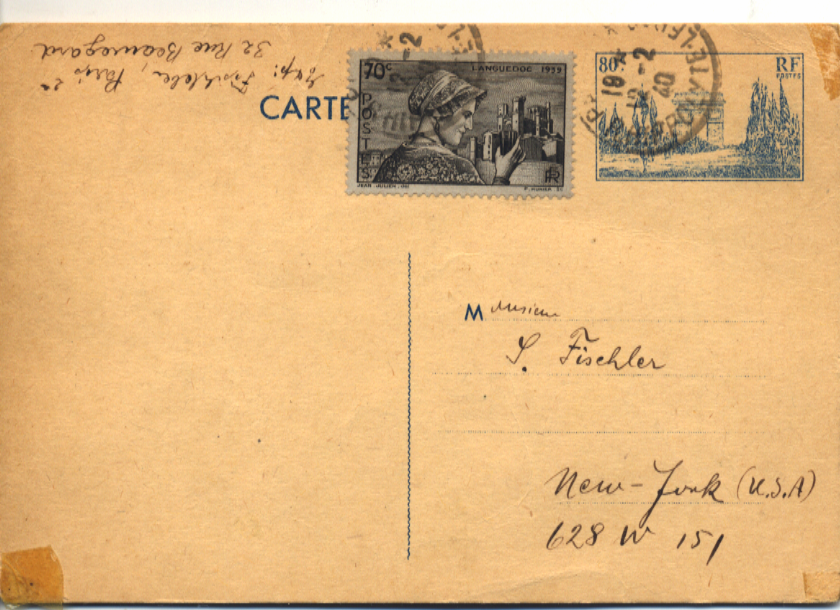 Exp: Fischler, Paris 2e
32 Rue Beauregard
CARTE
70c
LANGUEDOC 1939
POSTES
RF
JEAN JULIEN
80c
RF
POSTES
19 *
12 - 2
40
M Monsieur
S. Fischler
New-York (U.S.A)
628 W 151